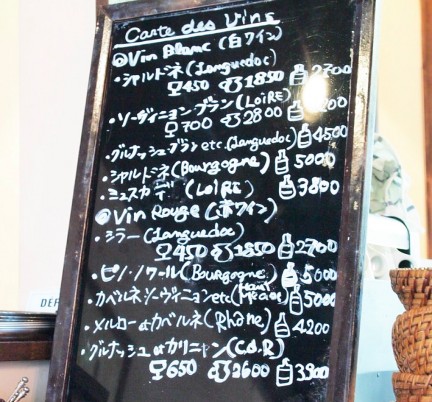 Carte des Vins
Vin Blanc (白ワイン)
・シャルドネ (Languedoc)
450 1850 2700
・ソーヴィニョンブラン (LOIRE)
700 2800
・グルナッシュブラン etc. (Languedoc) 4500
・シャルドネ (Bourgogne) 5000
・ミュスカデ (LOIRE) 3800
Vin Rouge (赤ワイン)
・シラー (Languedoc)
450 1850 2700
・ピノ・ノワール (Bourgogne) 5600
・カベルネソーヴィニヨン etc (Haut Médoc) 5000
・メルロー et カベルネ (Rhône) 4200
・グルナッシュ et カリニャン (C.D.R)
650 2600 3900
DEF